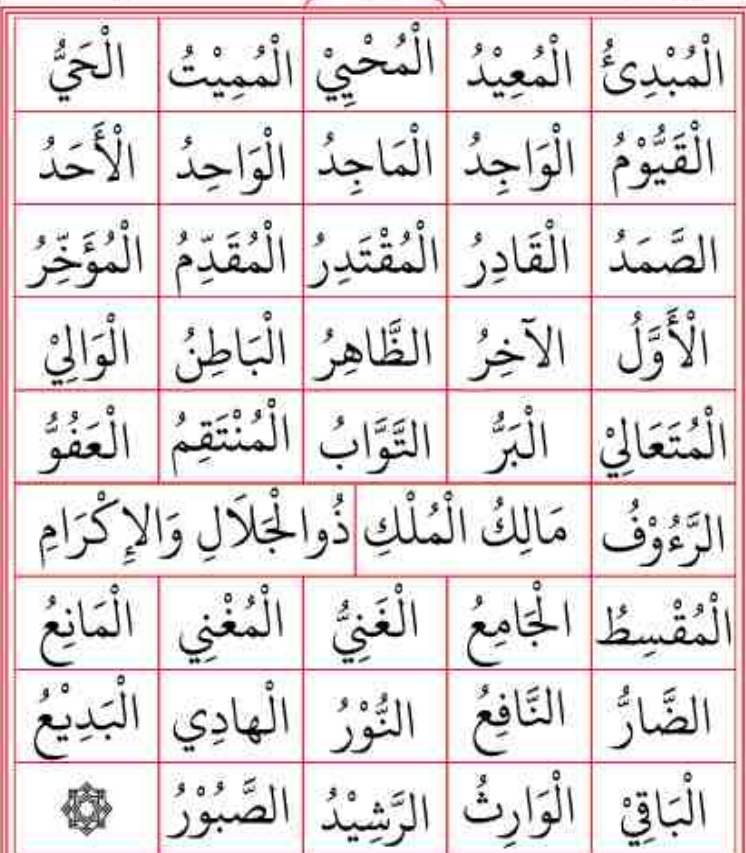 الْمُبْدِئُ الْمُعِيْدُ الْمُحْيِيْ الْمُمِيْتُ الْحَيُّ
الْقَيُّوْمُ الْوَاجِدُ الْمَاجِدُ الْوَاحِدُ الْأَحَدُ
الصَّمَدُ الْقَادِرُ الْمُقْتَدِرُ الْمُقَدِّمُ الْمُؤَخِّرُ
الْأَوَّلُ الآخِرُ الظَّاهِرُ الْبَاطِنُ الْوَالِيْ
الْمُتَعَالِيْ الْبَرُّ التَّوَّابُ الْمُنْتَقِمُ الْعَفُوُّ
الرَّءُوْفُ مَالِكُ الْمُلْكِ ذُوالْجَلَالِ وَالإِكْرَامِ
الْمُقْسِطُ الْجَامِعُ الْغَنِيُّ الْمُغْنِي الْمَانِعُ
الضَّارُّ النَّافِعُ النُّوْرُ الْهادِي الْبَدِيْعُ
الْبَاقِيْ الْوَارِثُ الرَّشِيْدُ الصَّبُوْرُ